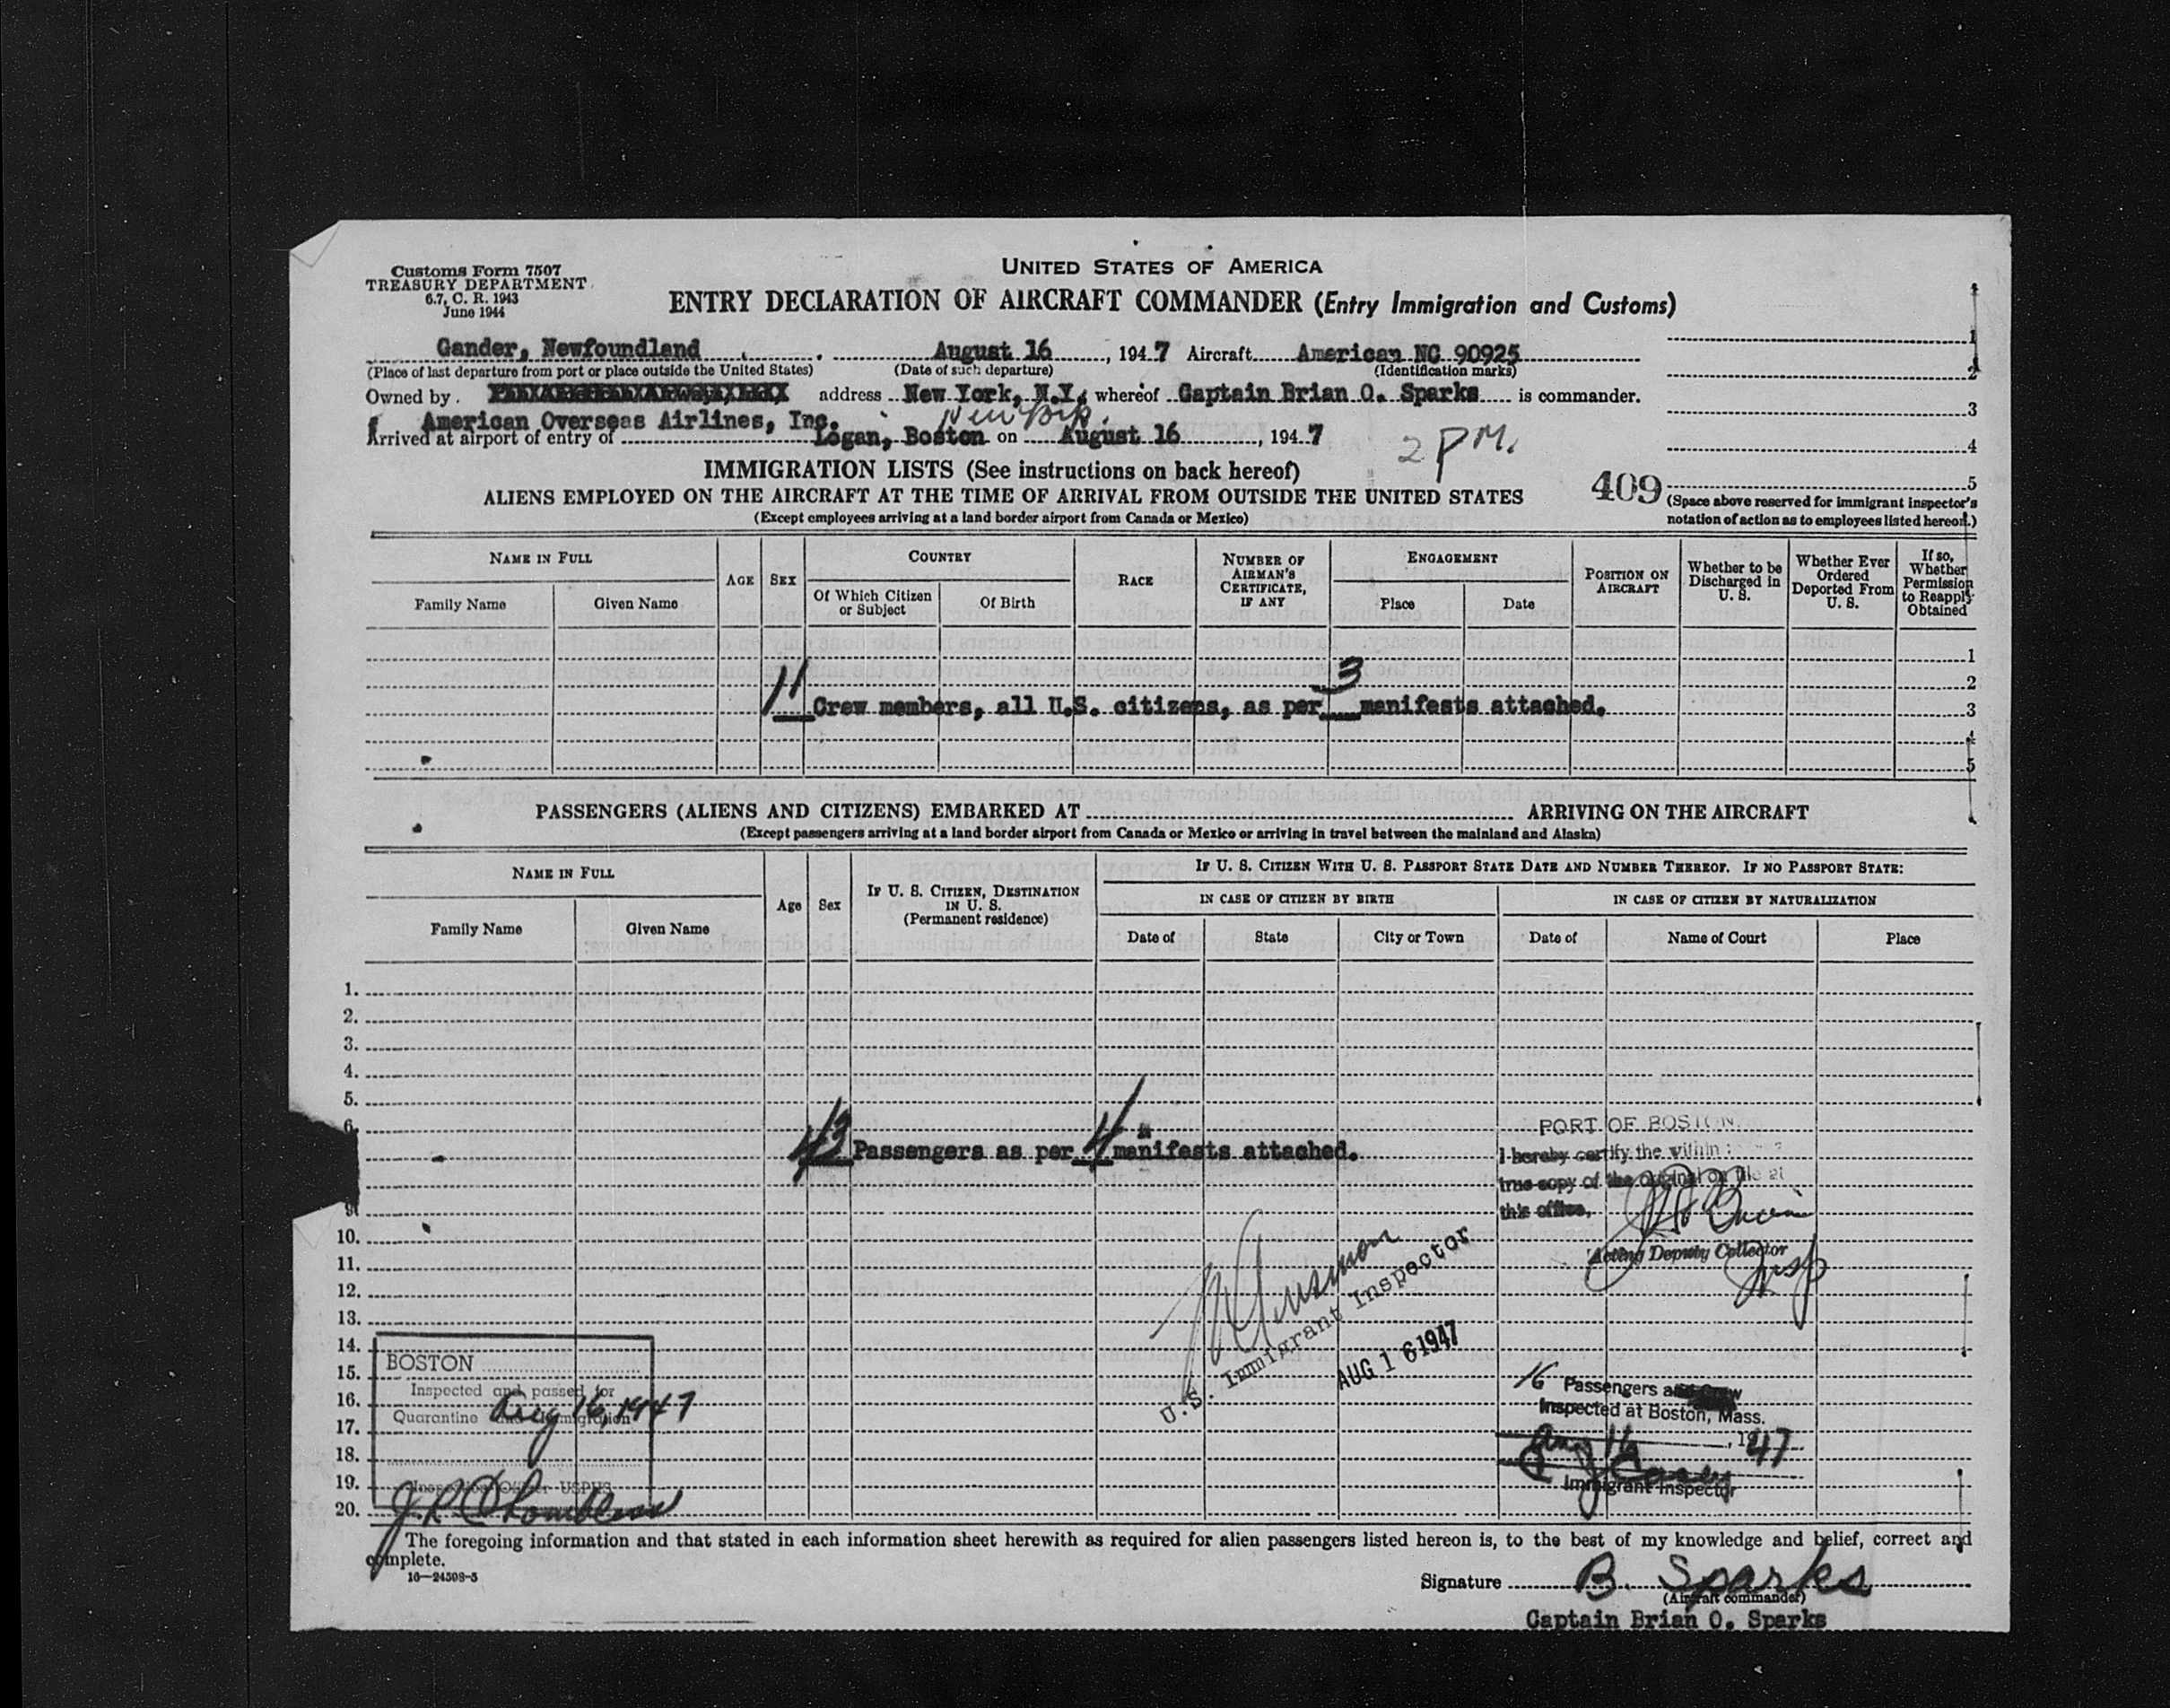 Customs Form 7507
TREASURY DEPARTMENT
6.7, C. R. 1943
June 1944
UNITED STATES OF AMERICA
ENTRY DECLARATION OF AIRCRAFT COMMANDER (Entry Immigration and Customs)
Gander, Newfoundland August 16, 1947 Aircraft American NC 90925
(Place of last departure from port or place outside the United States) (Date of such departure) (Identification marks)
Owned by address New York, N.Y. whereof Captain Brian O. Sparks is commander.
American Overseas Airlines, Inc. New York
Arrived at airport of entry of Logan, Boston on August 16, 1947
2 PM.
1
2
3
4
5
409
(Space above reserved for immigrant inspector's
notation of action as to employees listed hereon.)
IMMIGRATION LISTS (See instructions on back hereof)
ALIENS EMPLOYED ON THE AIRCRAFT AT THE TIME OF ARRIVAL FROM OUTSIDE THE UNITED STATES
(Except employees arriving at a land border airport from Canada or Mexico)
NAME IN FULL
Family Name Given Name
AGE SEX
COUNTRY
Of Which Citizen or Subject
Of Birth
RACE
NUMBER OF AIRMAN'S CERTIFICATE, IF ANY
ENGAGEMENT
Place Date
POSITION ON AIRCRAFT
Whether to be Discharged in U. S.
Whether Ever Ordered Deported From U. S.
If so, Whether Permission to Reapply Obtained
1
2
11 Crew members, all U.S. citizens, as per 3 manifests attached. 3
4
5
PASSENGERS (ALIENS AND CITIZENS) EMBARKED AT ARRIVING ON THE AIRCRAFT
(Except passengers arriving at a land border airport from Canada or Mexico or arriving in travel between the mainland and Alaska)
NAME IN FULL
Family Name Given Name
Age Sex
IF U. S. CITIZEN, DESTINATION IN U. S.
(Permanent residence)
IF U. S. CITIZEN WITH U. S. PASSPORT STATE DATE AND NUMBER THEREOF. IF NO PASSPORT STATE:
IN CASE OF CITIZEN BY BIRTH
Date of State City or Town
IN CASE OF CITIZEN BY NATURALIZATION
Date of Name of Court Place
1.
2.
3.
4.
5.
6.
43 Passengers as per 4 manifests attached.
9.
10.
11.
12.
13.
14.
15.
16.
17.
18.
19.
20.
PORT OF BOSTON
I hereby certify the within
true copy of the original on file at
this office,
Acting Deputy Collector
Insp
U.S. Immigrant Inspector
AUG 16 1947
BOSTON
Inspected and passed for
Quarantine and Immigration
Aug 16, 1947
Inspection Officer USPHS
16 Passengers and Crew
Inspected at Boston, Mass.
Aug 16, 1947
Immigrant Inspector
The foregoing information and that stated in each information sheet herewith as required for alien passengers listed hereon is, to the best of my knowledge and belief, correct and
complete.
16—24508-5
Signature B. Sparks
(Aircraft commander)
Captain Brian O. Sparks